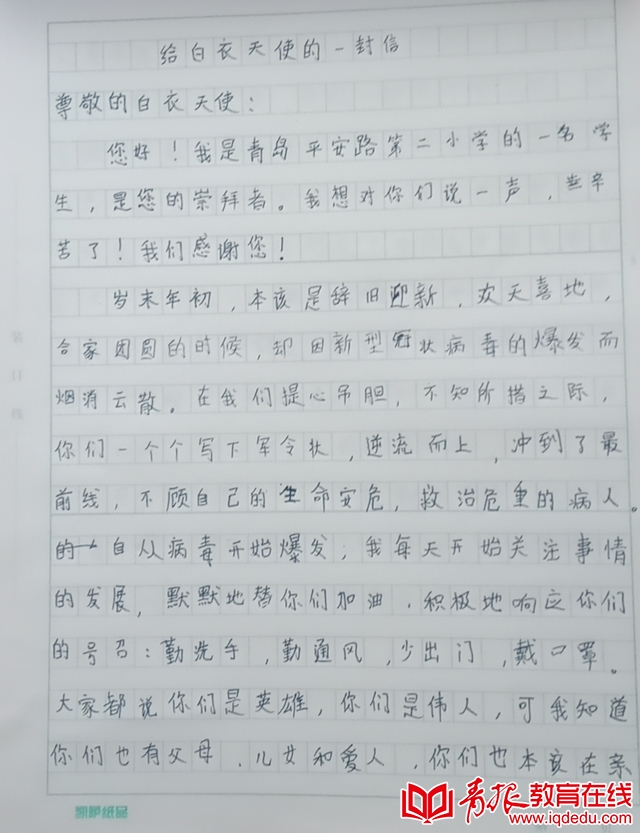 给白衣天使的一封信
尊敬的白衣天使：
您好！我是青岛平安路第二小学的一名学
生，是您的崇拜者。我想对你们说一声，辛
苦了！我们感谢您！
岁末年初，本该是辞旧迎新，欢天喜地，
合家团圆的时候，却因新型冠状病毒的爆发而
烟消云散。在我们提心吊胆，不知所措之际，
你们一个个写下军令状，逆流而上，冲到了最
前线，不顾自己的生命安危，救治危重的病人。
自从病毒开始爆发，我每天开始关注事情
的发展，默默地替你们加油，积极地响应你们
的号召：勤洗手，勤通风，少出门，戴口罩。
大家都说你们是英雄，你们是伟人，可我知道
你们也有父母、儿女和爱人，你们也本该在亲
装订线
青报教育在线
www.iqdedu.com